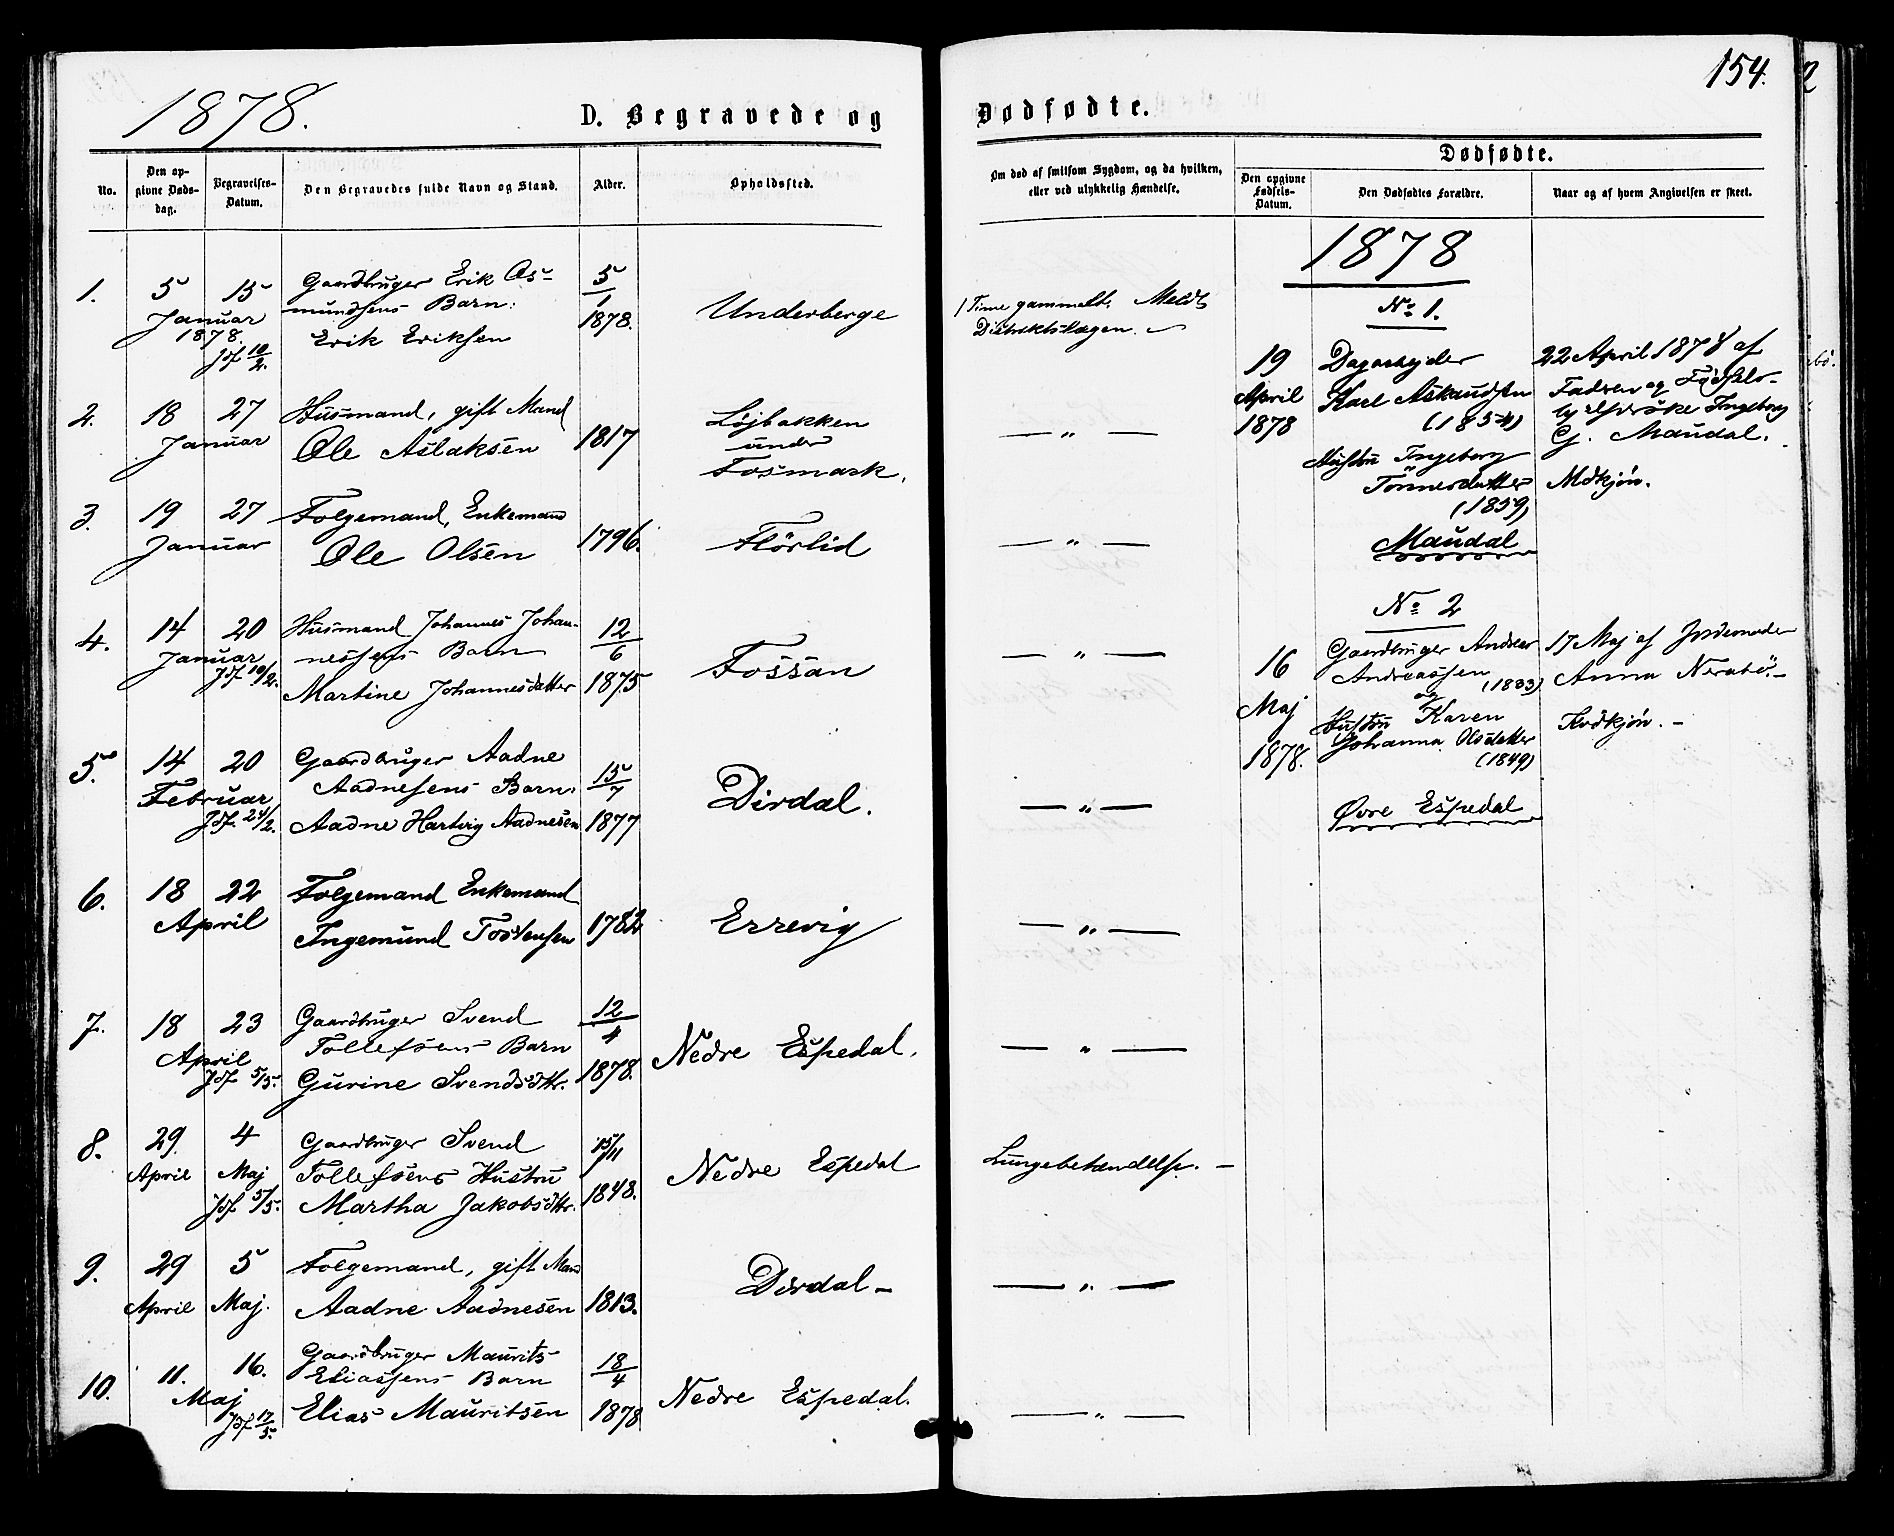 1878.
D. Begravede og
No.
Den op-
givne Døds-
dag.
Begravelses-
Datum.
Den Begravedes fulde Navn og Stand.
Alder.
Opholdssted.
1.
5 15
Januar
1878.
Jdf. 10/2.
Gaardbruger Erik As-
mundsens Barn:
Erik Eriksen
5/1
1878.
Underberge
2.
18 27
Januar
Husmand, gift Mand
Ole Aslaksen
1817
Løjbakken
under
Fosmark.
3.
19 27
Januar
Folgemand, Enkemand
Ole Olsen
1796.
Flörlid
4.
14 20
Januar
Jdf. 10/2.
Husmand Johannes Johan-
nessens Barn
Martine Johannesdatter
12/6
1875
Fossan
5.
14 20
Februar
Jdf. 24/2.
Gaardbruger Aadne
Aadnesens Barn:
Aadne Hartvig Aadnesen
15/7
1877
Dirdal.
6.
18 22
April
Folgemand Enkemand
Ingemund Tostensen
1782
Errevig
7.
18 23
April
Jdf. 5/5.
Gaardbruger Svend
Tollefsens Barn
Gurine Svendsdtr.
12/4
1878.
Nedre Espedal.
8.
29. 4
April Maj
Jdf. 5/5.
Gaardbruger Svend
Tollefsens Hustru
Martha Jakobsdtr.
15/11
1848.
Nedre Espedal
9.
29 5
April Maj.
Folgemand, gift Mand
Aadne Aadnesen
1813.
Dirdal -
10.
11. 16.
Maj
Jdf. 17/5.
Gaardbruger Maurits
Eliassens Barn
Elias Mauritsen
18/4
1878
Nedre Espedal.
154.
Dødfødte.
Om død af smitsom Sygdom, og da hvilken,
eller ved ulykkelig Hændelse.
Dødfødte.
Den opgivne
Fødsels-
Datum.
Den Dødfødtes Forældre.
Naar og af hvem Angivelsen er skeet.
1 Time gammelt. Meldt
Distriktslægen.
— " —
— " —
— " —
— " —
— " —
— " —
Lungebetændelse. -
— " —
— " —
1878
No 1.
19
April
1878
Dagarbejder
Karl Askaudsen
(1854)
Hustru Ingeborg
Tönnesdatter
(1859)
Maudal
22 April 1878 af
Faderen og Fødsels-
Ingeborg
G. Maudal.
Mdkjøn.
No 2
16
Maj
1878.
Gaardbruger Andreas
Andreassen (1833)
og
Hustru Karen
Johanna Olsdatter
(1849)
Øvre Espedal
17 Maj af Jordemoder
Anna Nerabö. -
Kvdkjøn. -